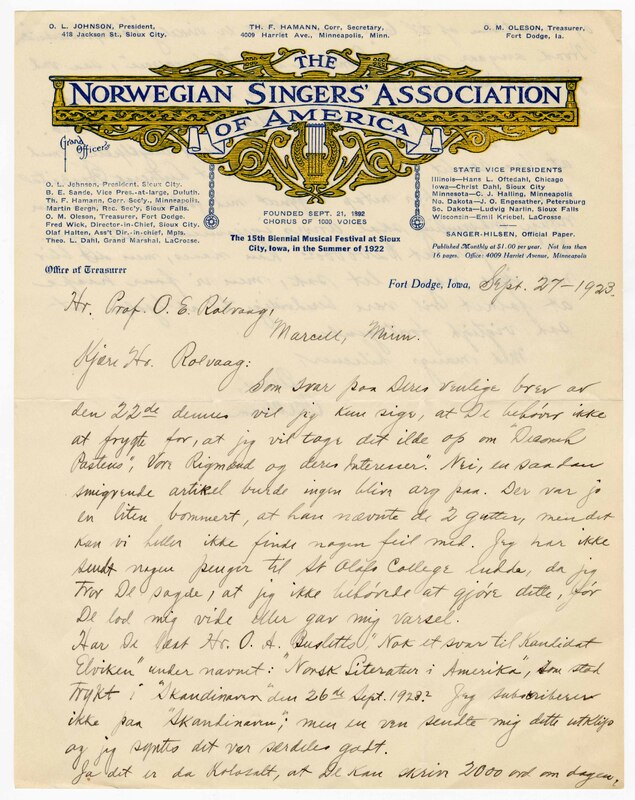 O. L. JOHNSON, President,
418 Jackson St., Sioux City.
TH. F. HAMANN, Corr. Secretary,
4009 Harriet Ave., Minneapolis, Minn.
O. M. OLESON, Treasurer,
Fort Dodge, Ia.
THE
NORWEGIAN SINGERS' ASSOCIATION
OF AMERICA
Grand Officers
O. L. Johnson, President, Sioux City.
B. E. Sande, Vice Pres.-at-large, Duluth.
Th. F. Hamann, Corr. Sec'y., Minneapolis.
Martin Bergh, Rec. Sec'y, Sioux Falls.
O. M. Oleson, Treasurer, Fort Dodge.
Fred Wick, Director-in-Chief, Sioux City.
Olaf Halten, Ass't Dir.-in-chief, Mpls.
Theo. L. Dahl, Grand Marshal, LaCrosse.
FOUNDED SEPT. 21, 1892
CHORUS OF 1000 VOICES
The 15th Biennial Musical Festival at Sioux
City, Iowa, in the Summer of 1922
STATE VICE PRESIDENTS
Illinois—Hans L. Oftedahl, Chicago
Iowa—Christ Dahl, Sioux City
Minnesota—C. J. Halling, Minneapolis
No. Dakota—J. O. Engesather, Petersburg
So. Dakota—Ludvig Narlin, Sioux Falls
Wisconsin—Emil Kriebel, LaCrosse
SANGER-HILSEN, Official Paper.
Published Monthly at $1.00 per year. Not less than
16 pages. Office: 4009 Harriet Avenue, Minneapolis
Office of Treasurer
Fort Dodge, Iowa, Sept. 27–1923.
Hr. Prof. O. E. Rölvaag,
Marcell, Minn.
Kjære Hr. Rolvaag:
Som svar paa Deres venlige brev av
den 22de dennes vil jeg kun sige, at De behöver ikke
at frygte for, at jeg vil tage det ilde op om
"Vore Rigmænd og deres Interesser". Nei, en saadan
smigrende artikel burde ingen bliva arg paa. Der var jo
en liten bommert, at han nævnte de 2 gutter, men det
kan vi heller ikke finde nogen feil med. Jeg har ikke
sendt nogen penger til St Olafs College endda, da jeg
tror De sagde, at jeg ikke behövede at gjöre dette, för
De lod mig vide eller gav mig varsel.
Har De læst Hr. O. A. Buslett's, "Nok et svar til Kandidat
Elviken" under navnet: "Norsk Literatur i Amerika", som stod
trykt i "Skandinaven" den 26de Sept. 1923? Jeg subscriberer
ikke paa "Skandinaven", men en ven sendte mig dette utklip
og jeg syntes det var særdeles godt.
Ja det er da Kolosalt, at De kan skrive 2000 ord om dagen,